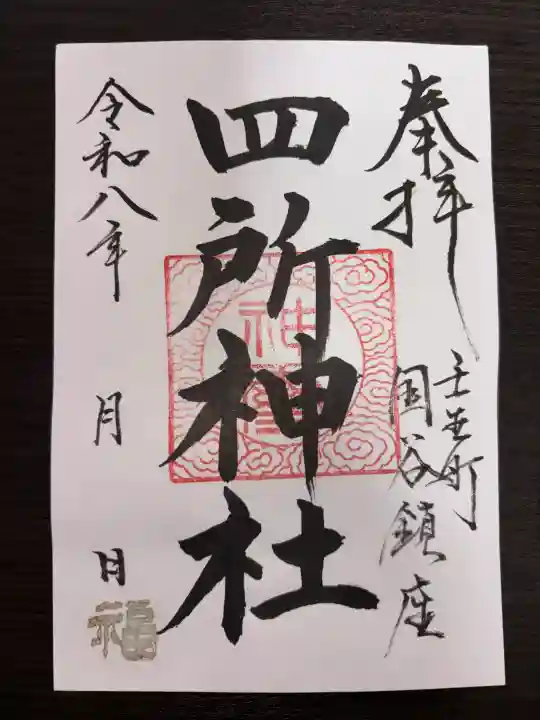 奉拝
壬生町
国谷鎮座
四所神社
令和八年 月 日
福